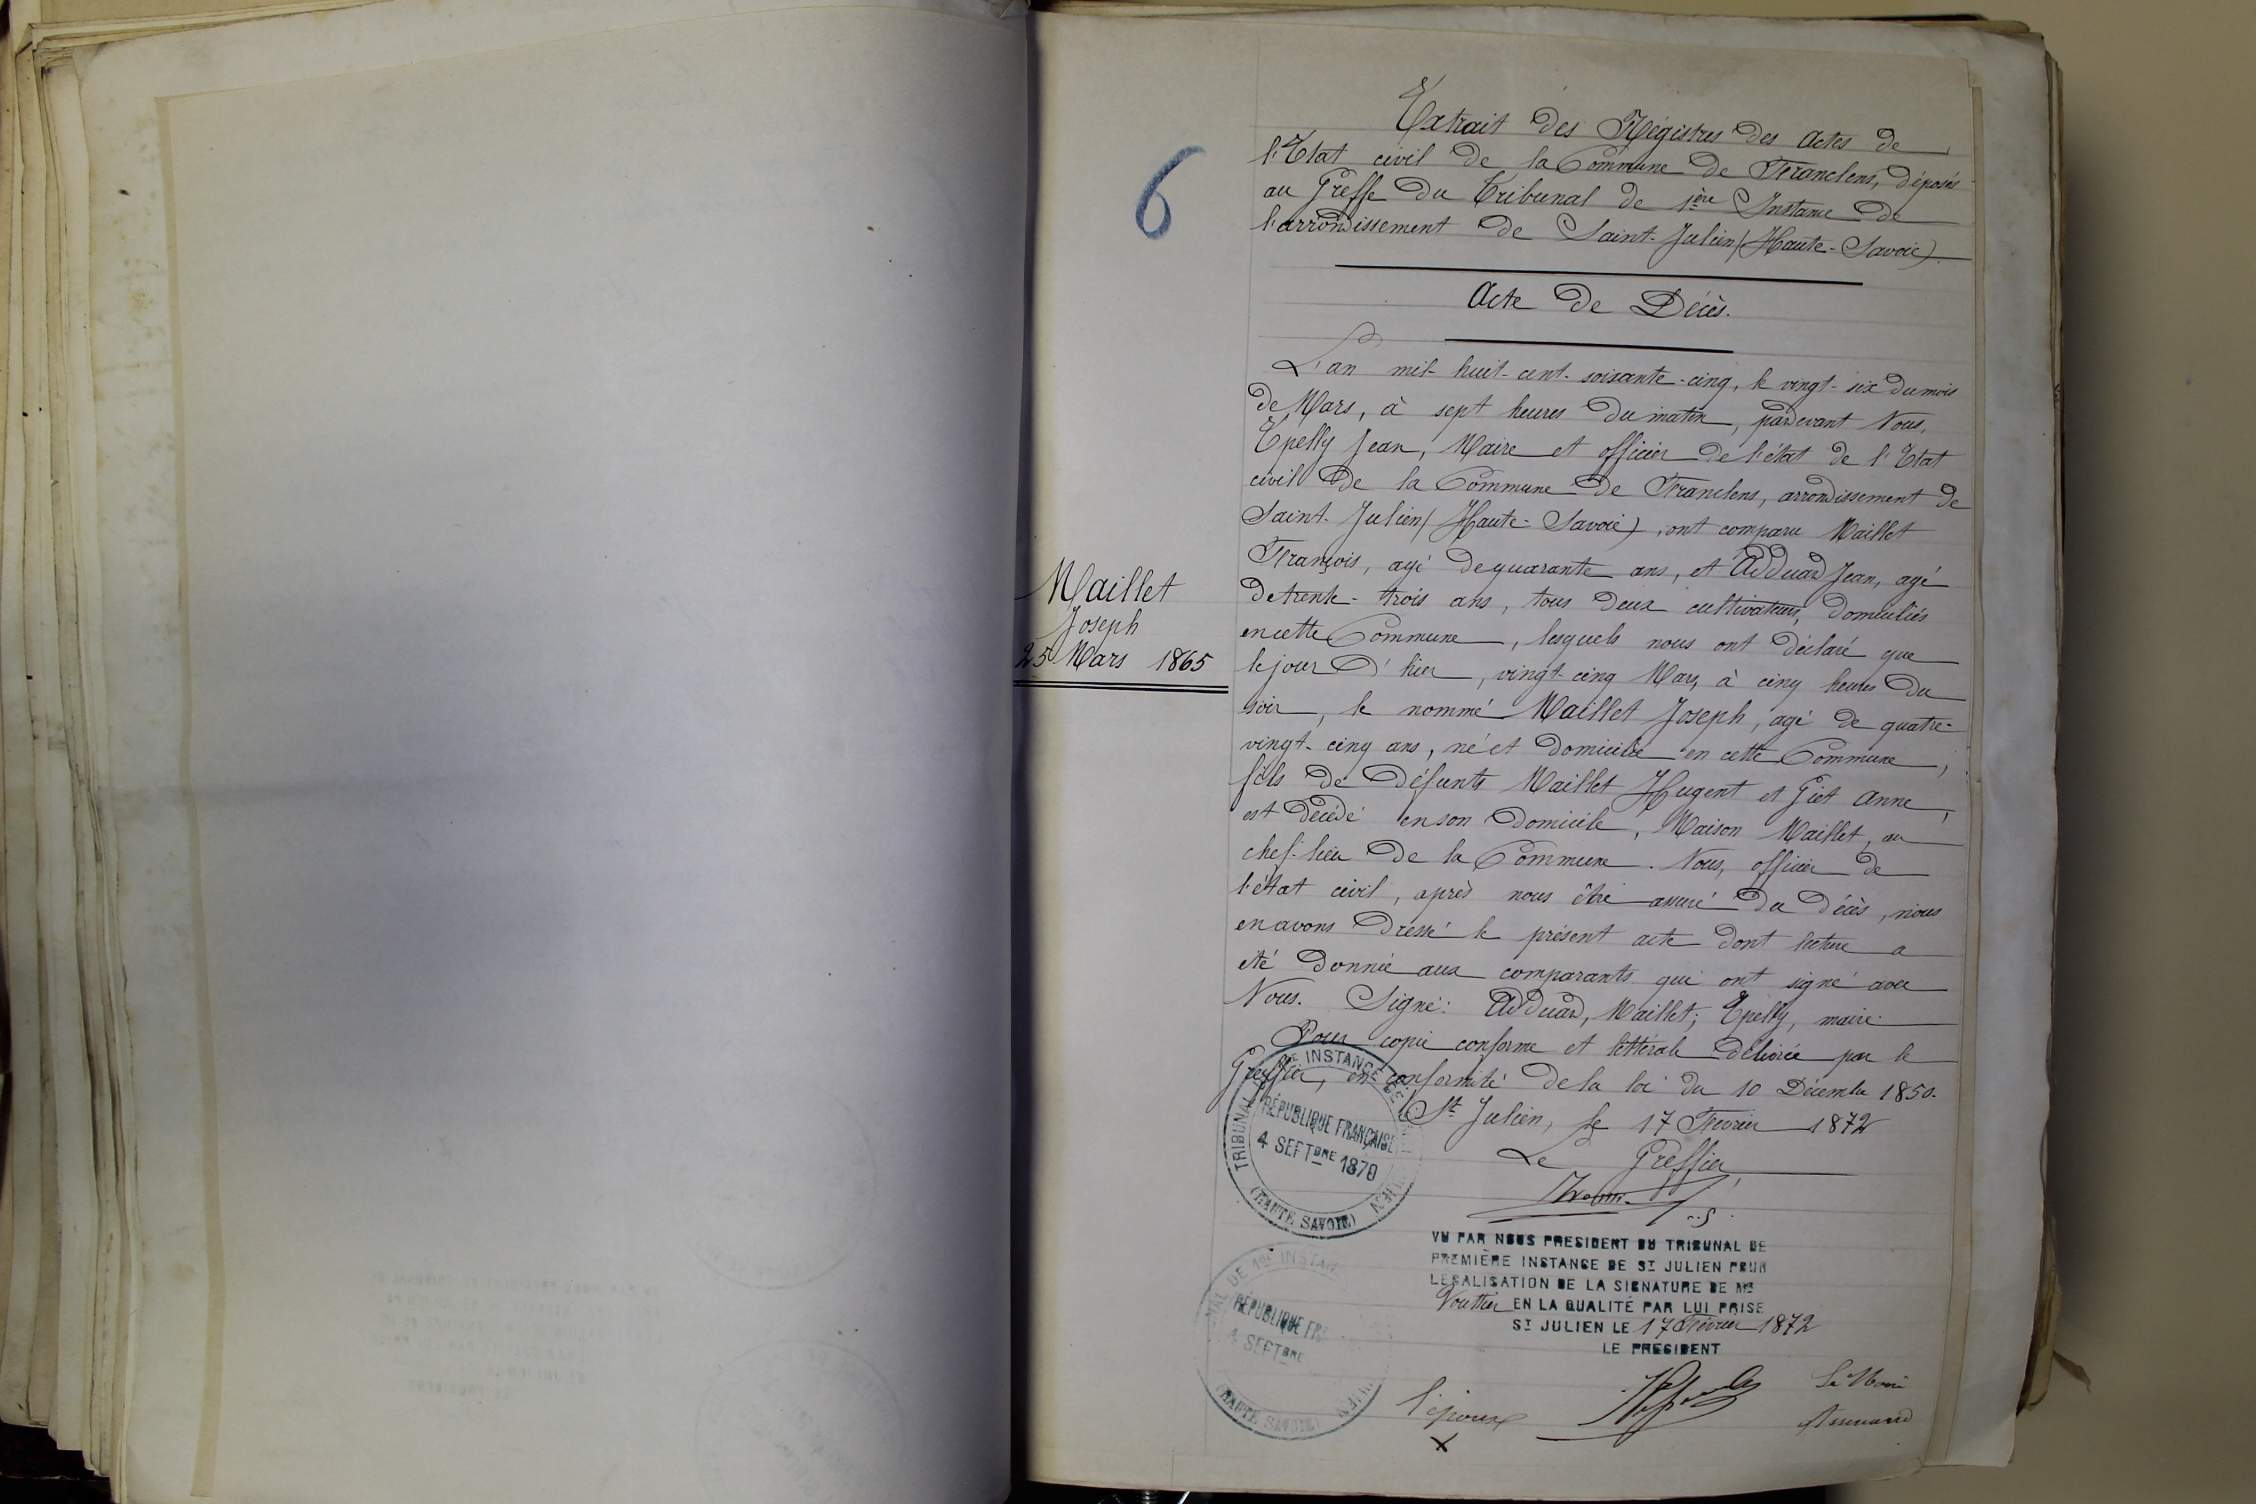 6
Extrait des Régistres des Actes de
l'Etat civil de la Commune de Franclens, déposés
au Greffe du Tribunal de 1ère Instance de
l'arrondissement de Saint-Julien (Haute-Savoie).
Acte de Décès.
L'an mil-huit-cent-soixante-cinq, le vingt-six du mois
de Mars, à sept heures du matin, pardevant Nous,
Epelly Jean, Maire et officier de l'état de l'Etat
civil de la Commune de Franclens, arrondissement de
Saint-Julien (Haute-Savoie), ont comparu Maillet
François, agé de quarante ans, et Adduad Jean, agé
de trente-trois ans, tous deux cultivateurs, domiciliés
en cette Commune, lesquels nous ont déclaré que
le jour d'hier, vingt-cinq Mars, à cinq heures du
soir, le nommé Maillet Joseph, agé de quatre-
vingt-cinq ans, né et domicilié en cette Commune,
fils de défunts Maillet Hugent et Giet Anne,
est décédé en son domicile, Maison Maillet, au
chef-lieu de la Commune. Nous, officier de
l'état civil, après nous être assuré du décès, nous
en avons dressé le présent acte dont lecture a
été donnée aux comparants qui ont signé avec
Nous. Signé: Adduad, Maillet; Epelly, maire.
Pour copie conforme et littérale délivrée par le
Greffier, en conformité de la loi du 10 Décembre 1850.
St Julien, le 17 Février 1872
Le Greffier
Maillet
Joseph
25 Mars 1865
TRIBUNAL DE 1RE INSTANCE DE
RÉPUBLIQUE FRANÇAISE
4 SEPTBRE 1870
(HAUTE SAVOIE)
VU PAR NOUS PRESIDENT DU TRIBUNAL DE
PREMIÈRE INSTANCE DE ST JULIEN POUR
LEGALISATION DE LA SIGNATURE DE MR
Vouttier EN LA QUALITÉ PAR LUI PRISE
ST JULIEN LE 17 Février 1872
LE PRESIDENT
DE 1RE INSTANCE
RÉPUBLIQUE FR
4 SEPTBRE
(HAUTE SAVOIE)
l'époux
X
Le Maire